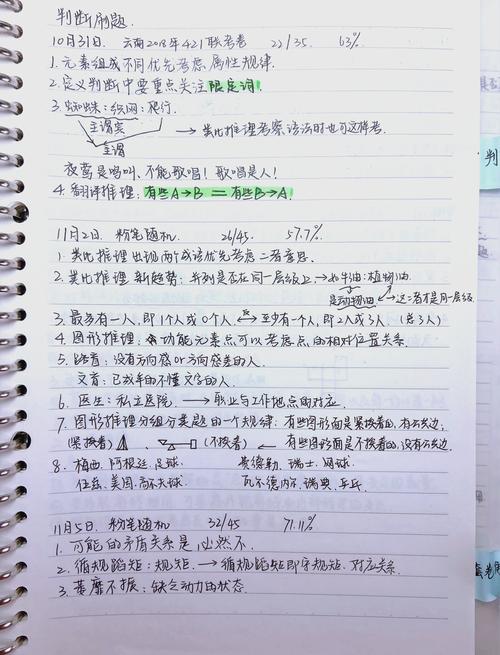 判断刷题.
10月31日. 云南2018年421联考卷 22/35 63%
1.元素组成不同优先考虑属性规律.
2.定义判断中要重点关注限定词.
3.蜘蛛:织网:爬行.
主谓宾 → 类比推理考察语法时也可这样考.
主谓
夜莺是鸣叫、不能歌唱!歌唱是人!
4.翻译推理:有些A→B = 有些B→A.
11月2日. 粉笔随机 26/45 57.7%.
1.类比推理出现两个成语优先考虑二者意思.
2.类比推理新趋势:并列是否在同一层级上,→如牛油:植物油
是动物油 ←这二者不是同一层级.
3.最多有一人,即1个人或0个人.⇄至少有一个人,即2人或3人 (总3人)
4.图形推理:功能元素点可以考虑点的相对位置关系.
5.路盲:没有方向感or方向感差的人.
文盲:已成年的不懂文字的人.
6.医生:私立医院.→职业与工作地点的对应.
7.图形推理分组分类题的一个规律:有些图形面是紧挨着的,有公共边;
(紧挨着) (不挨着) ← 有些图形面是不挨着的,没有公共边.
8.梅西.阿根廷.足球. 费德勒.瑞士.网球.
伍兹.美国.高尔夫球. 瓦尔德内尔.瑞典.乒乓.
11月5日.粉笔随机 32/45 71.11%
1.可能的矛盾关系是必然不.
2.循规蹈矩:规矩.→循规蹈矩即守规矩.对应关系.
3.萎靡不振:缺乏动力的状态.
判